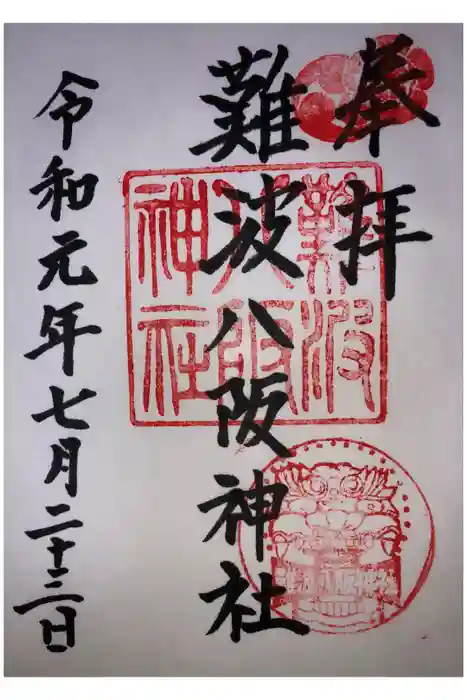 奉拝
難波八阪神社
難波八阪神社
令和元年七月二十三日